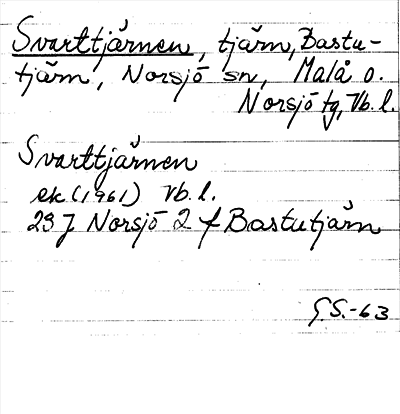 Svarttjärnen, tjärn, Bastu-
tjärn, Norsjö sn, Malå o.
Norsjö tg, Vb. l.
Svarttjärnen
ek. (1961) Vb. l.
23 J Norsjö 2 f Bastutjärn
G.S.-63